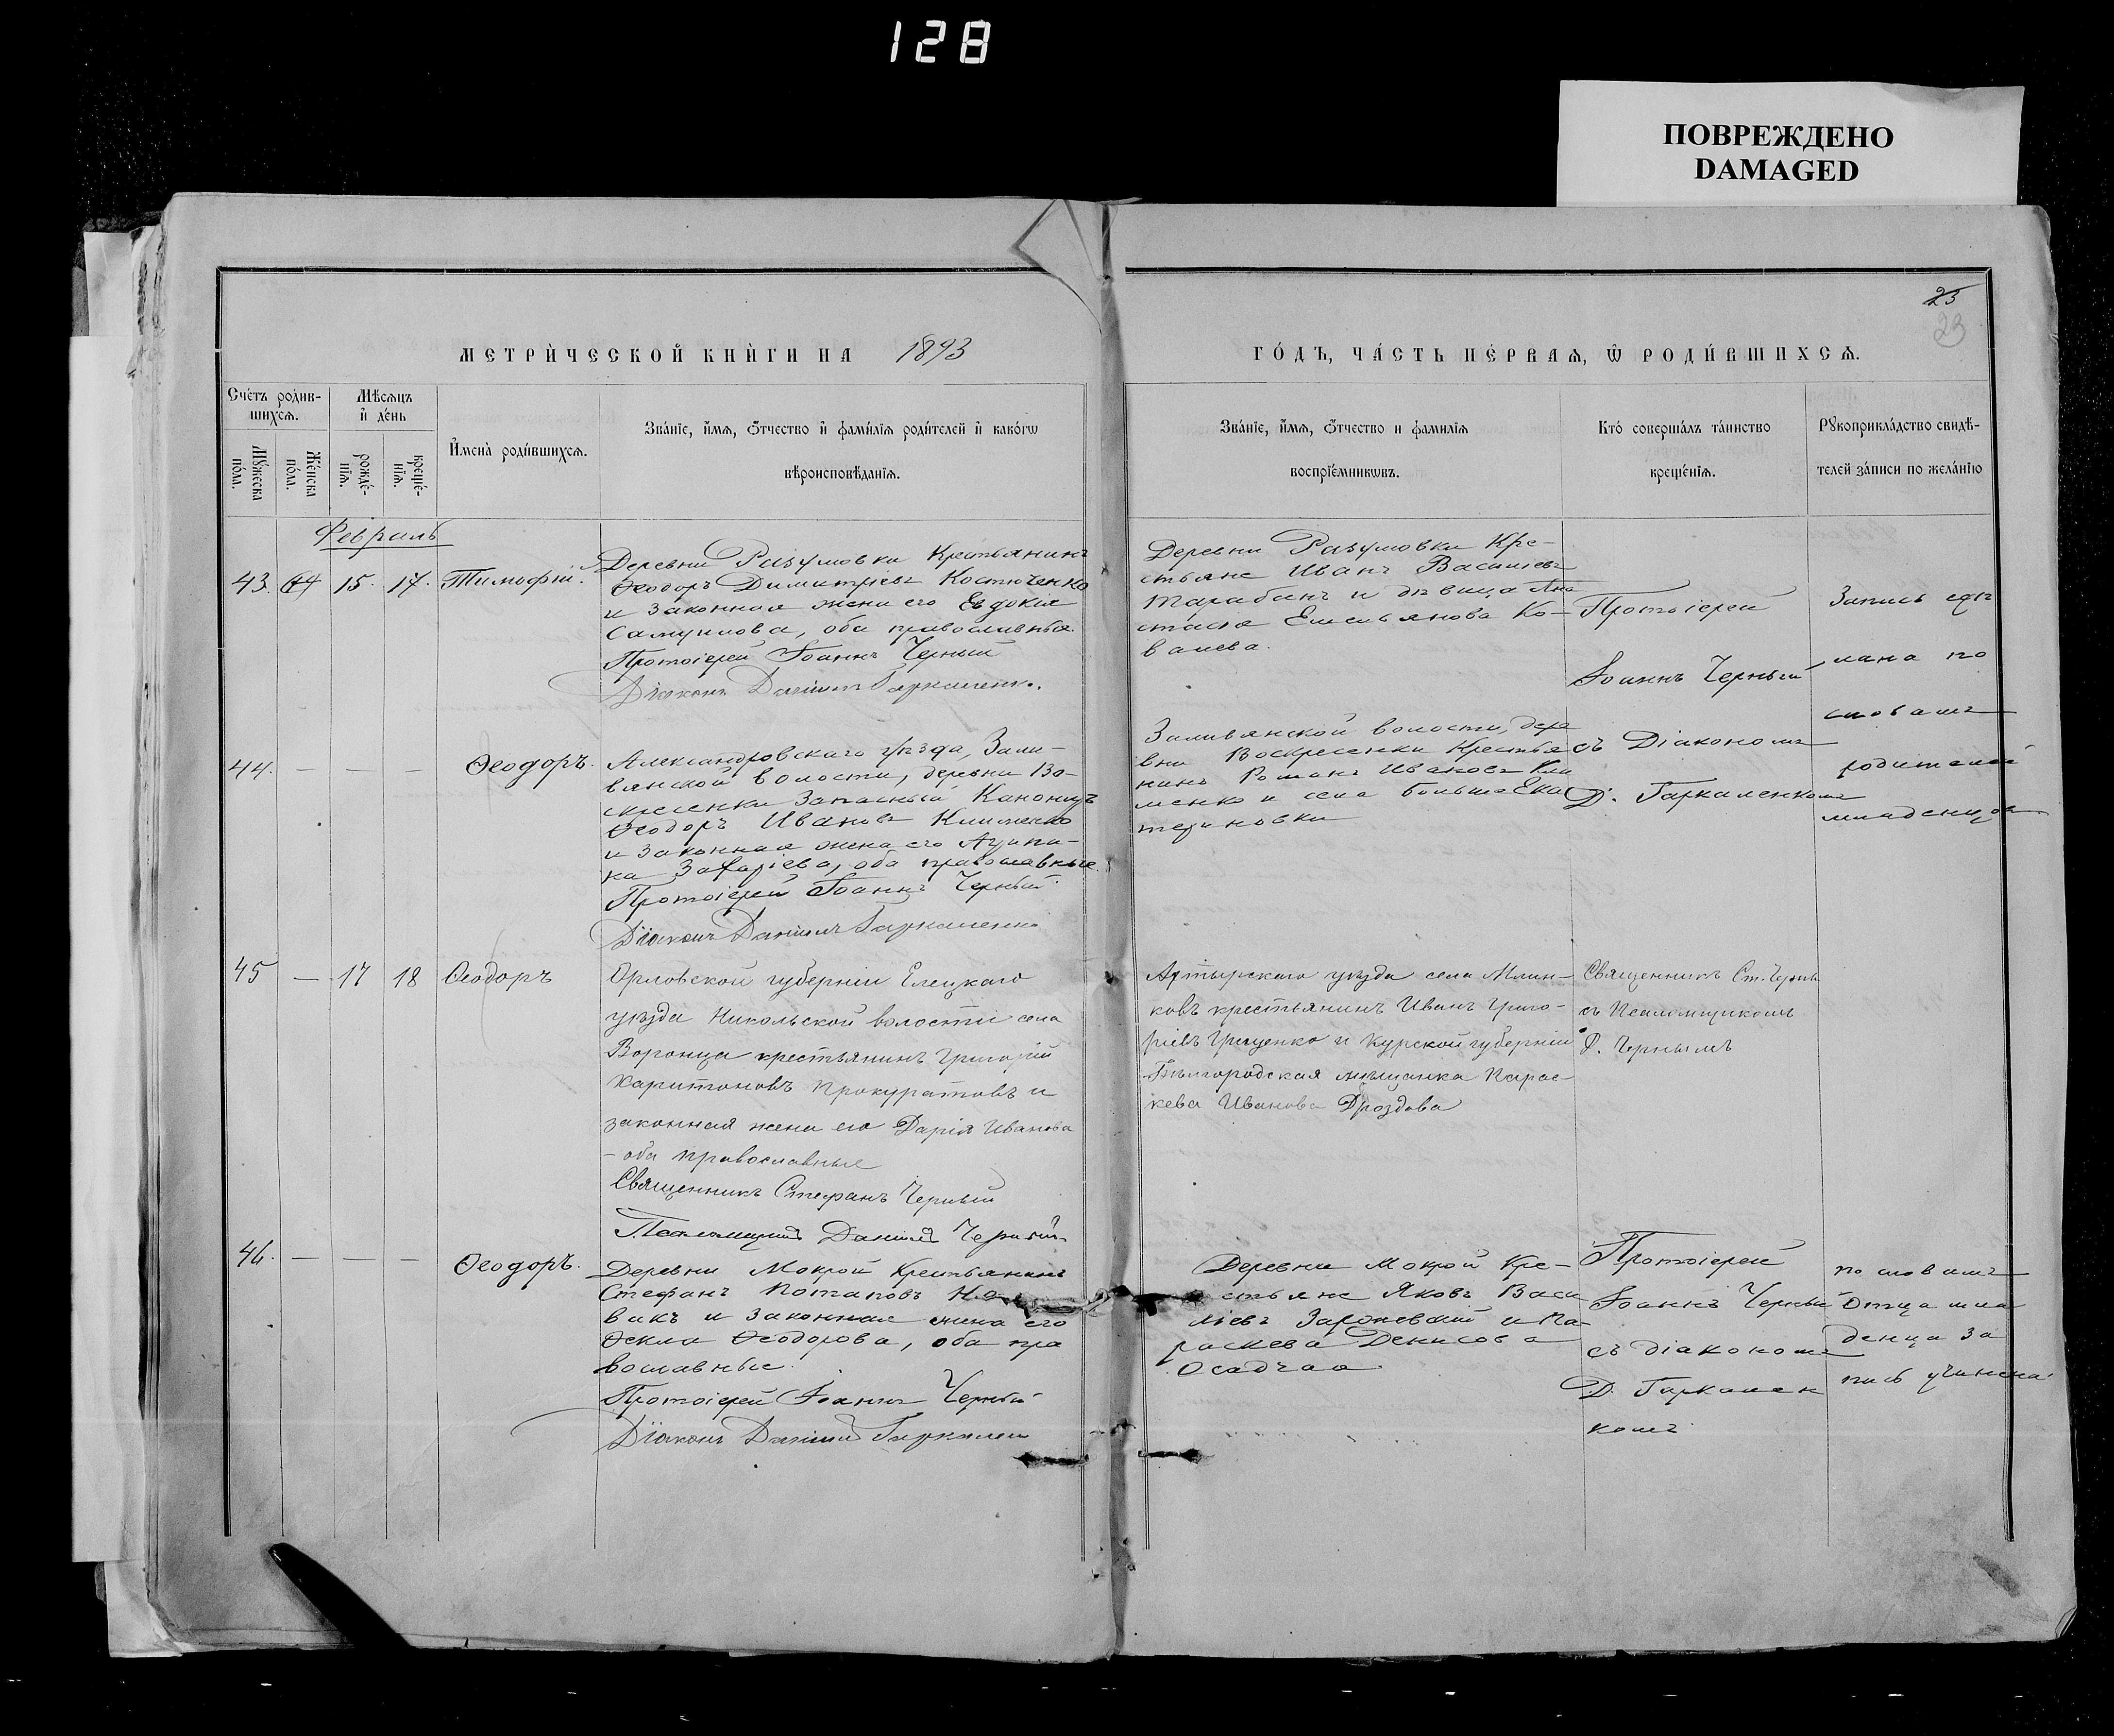 128
ПОВРЕЖДЕНО
DAMAGED
23
23
МЕТРИ́ЧЕСКОЙ КНИ́ГИ НА 1893
ГО́ДЪ, ЧА́СТЬ ПЕ́РВАѦ, Ѿ РОДИ́ВШИХСѦ.
Сче́тъ роди́в-
шихсѧ.
Мꙋ́жеска по́ла.
Же́нска по́ла.
Мѣ́сѧцъ
и҆ де́нь
рожде́-
нїѧ.
креще́-
нїѧ.
И҆мена̀ роди́вшихсѧ.
Зва́нїе, и҆́мѧ, ѻ҆́тчество и҆ фами́лїѧ роди́телей и҆ како́гѡ
вѣроисповѣ́данїѧ.
Зва́нїе, и҆́мѧ, ѻ҆́тчество и фамилїѧ
воспрїе́мникѡвъ.
Кто́ соверша́лъ та́инство
креще́нїѧ.
Рꙋкоприкла́дство свидѣ́-
телей за́писи по жела́нїю
Февраль
43. 15. 17. Тимофій.
Деревни Разумовки Крестьянинъ
Ѳеодоръ Димитріевъ Костюченко
и законная жена его Евдокія
Самуилова, оба православные.
Протоіерей Іоаннъ Черный
Діаконъ Даніилъ Гаркаленко.
Деревни Разумовки Кре-
стьяне Иванъ Васильевъ
Тарабанъ и дѣвица Ана
стасія Емельянова Ко-
валева.
Протоіерей
Іоаннъ Черный
съ Діакономъ
Д. Гаркаленкомъ
Запись сдѣ
лана по
словамъ
родителей
младенцовъ
44. — — — Ѳеодоръ.
Александровскаго уѣзда, Зали-
вянской волости, деревни Во-
скресенки Запасный Канониръ
Ѳеодоръ Ивановъ Клименко
и законная жена его Агрипи-
на Захаріева, оба православные.
Протоіерей Іоаннъ Черный.
Діаконъ Даніилъ Гаркаленко
Заливянской волости, дере
вни Воскресенки Крестья
нинъ Романъ Ивановъ Кли
менко и села больше Ека
териновки
45 — 17 18 Ѳеодоръ
Орловской губерніи Елецкаго
уѣзда Никольской волости села
Воронца крестьянинъ Григорій
Харитоновъ Прокуратовъ и
законная жена его Дарія Иванова
- оба православные
Священникъ Стефанъ Черный
Псаломщикъ Даніилъ Черный
Ахтырскаго уѣзда села Млин-
ковъ крестьянинъ Иванъ Григо-
ріевъ Гриценко и Курской губерніи
Бѣлгородская мѣщанка Парас-
кева Иванова Дроздова
Священникъ Ст. Черный
съ Псаломщикомъ
Д. Чернымъ
46. — — — Ѳеодоръ.
Деревни Мокрой Крестьянинъ
Стефанъ Потаповъ
викъ и законная жена его
Ѳекла Ѳеодорова, оба пра
вославные.
Протоіерей Іоаннъ Черный
Діаконъ Даніилъ Гаркален
Деревни Мокрой Кре-
стьяне Яковъ Васи
ліевъ и Па-
раскева Денисова
Осадчая.
Протоіерей
Іоаннъ Черный
съ діакономъ
Д. Гаркален
комъ.
по словамъ
Отца мла
денца за
пись учинена.